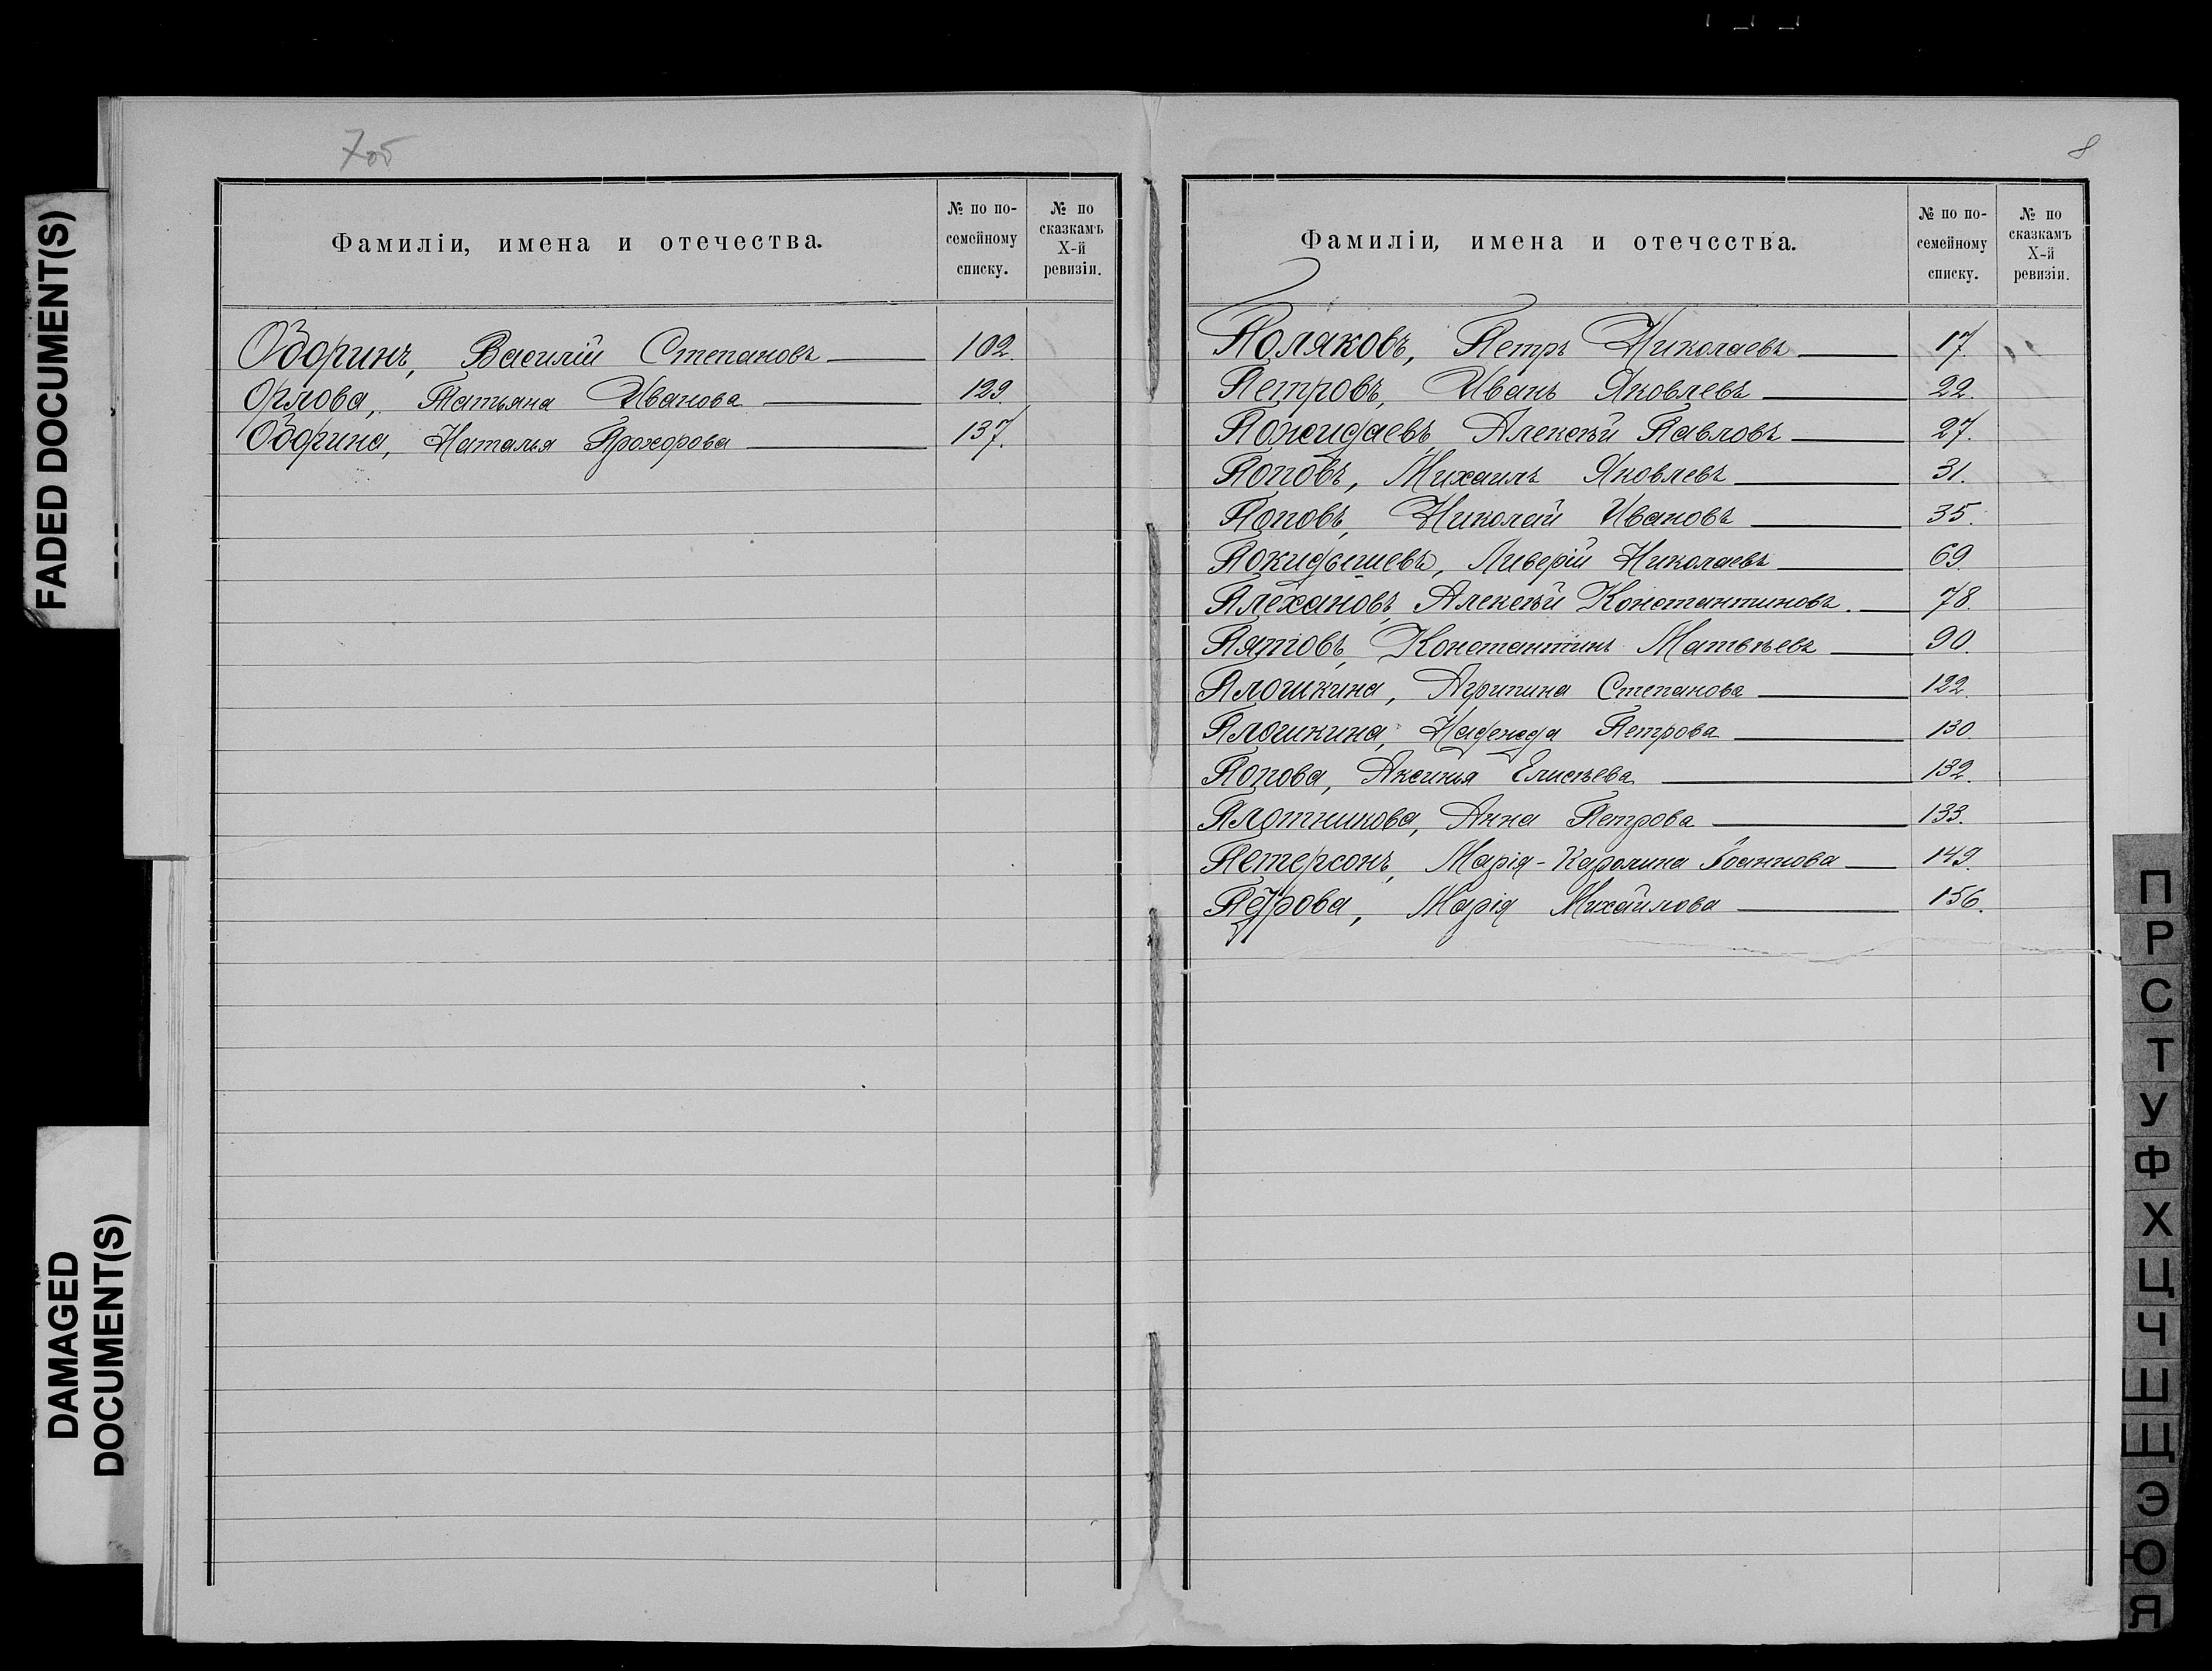 FADED DOCUMENT(S)
DAMAGED
DOCUMENT(S)
7об
Фамиліи, имена и отечества.
№ по по-
семейному
списку.
№ по
сказкамъ
X-й
ревизіи.
Озоринъ, Василій Степановъ 102.
Орлова, Татьяна Иванова 129.
Озорина, Наталья Прохорова 137.
8
Фамиліи, имена и отечества.
№ по по-
семейному
списку.
№ по
сказкамъ
X-й
ревизіи.
Поляковъ, Петръ Николаевъ 17.
Петровъ, Иванъ Яковлевъ 22.
Пожидаевъ, Алексѣй Павловъ 27.
Поповъ, Михаилъ Яковлевъ 31.
Поповъ, Николай Ивановъ 35.
Покидышевъ, Ливерій Николаевъ 69.
Плехановъ, Алексѣй Константиновъ. 78.
Пятовъ, Константинъ Матвѣевъ 90.
Плошкина, Агрипина Степанова 122.
Плошкина, Надежда Петрова 130.
Попова, Аксинья Елисѣева 132.
Плотникова, Анна Петрова 133.
Петерсонъ, Марія-Каролина Іоаннова 149.
Марія Михайлова 156.
П
Р
С
Т
У
Ф
Х
Ц
Ч
Ш
Щ
Э
Ю
Я